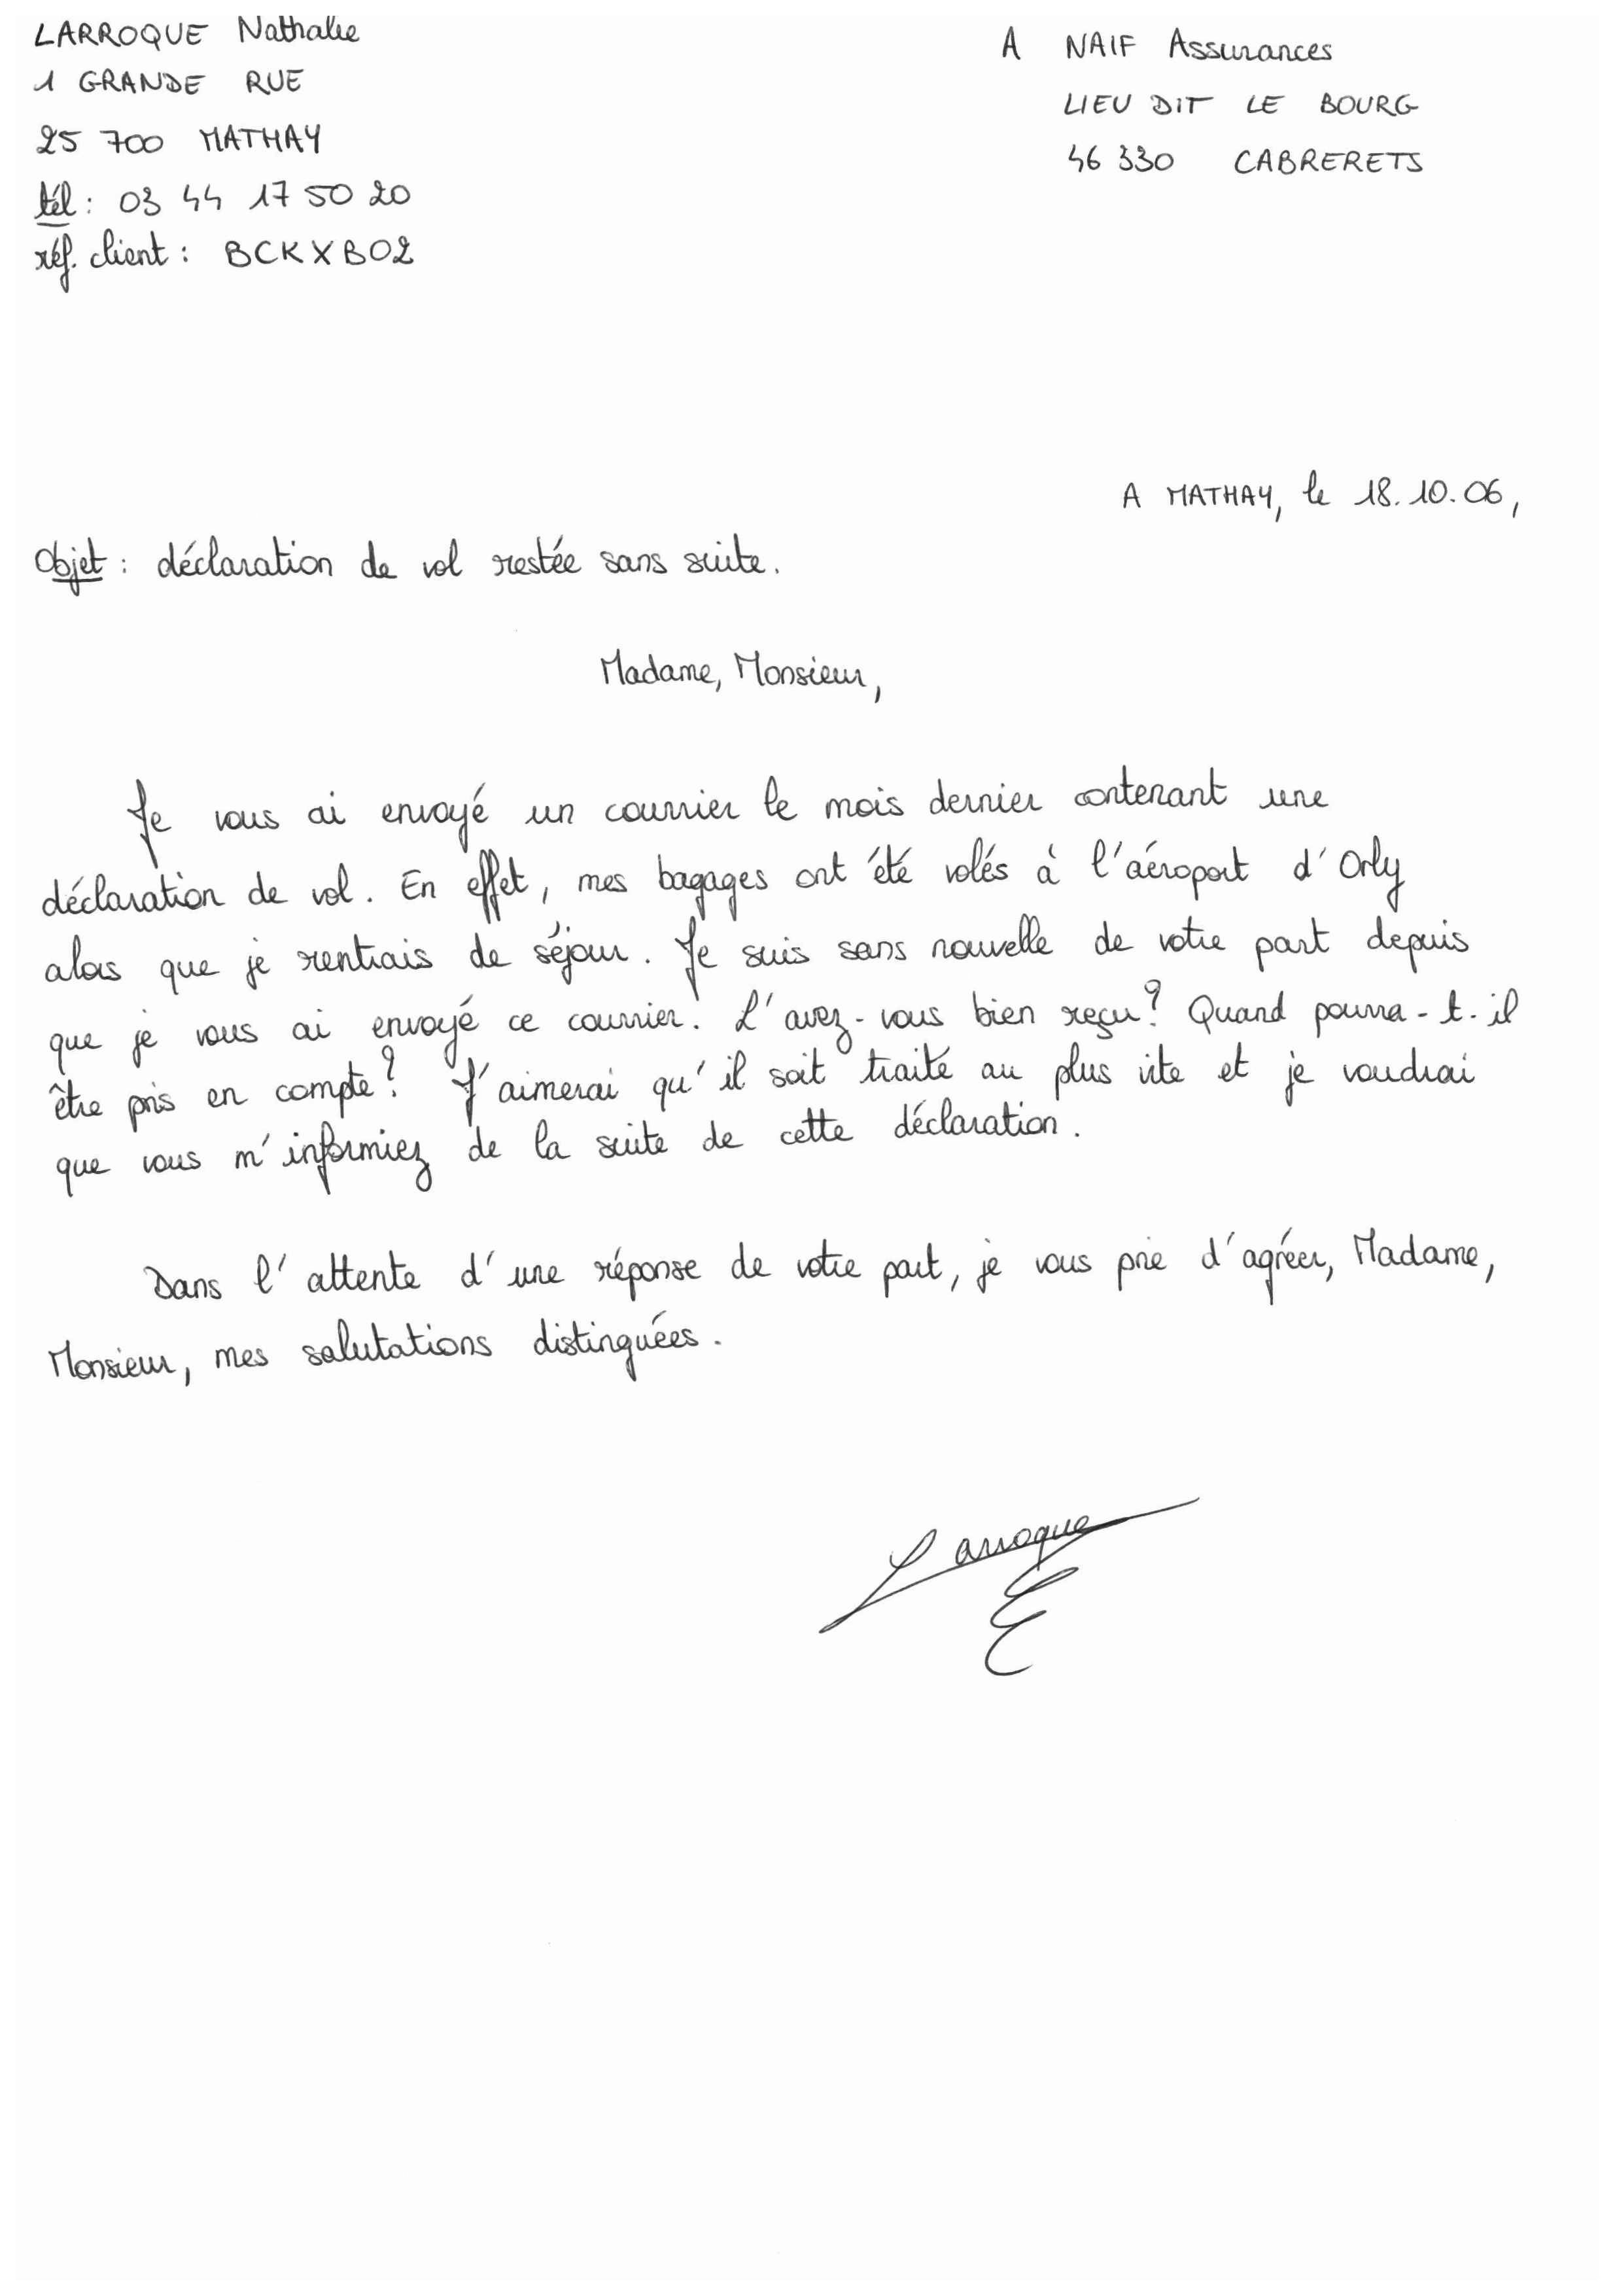 LARROQUE Nathalie
1 GRANDE RUE
25 700 MATHAY
tél : 03 44 17 50 20
réf. client : BCKXB02
A NAIF Assurances
LIEU DIT LE BOURG
46 330 CABRERETS
A MATHAY, le 18.10.06,
Objet : déclaration de vol restée sans suite.
Madame, Monsieur,
Je vous ai envoyé un courrier le mois dernier contenant une
déclaration de vol. En effet, mes bagages ont été volés à l'aéroport d'Orly
alors que je rentrais de séjour. Je suis sans nouvelle de votre part depuis
que je vous ai envoyé ce courrier. L'avez-vous bien reçu? Quand pourra-t-il
être pris en compte? J'aimerai qu'il soit traité au plus vite et je voudrai
que vous m'informiez de la suite de cette déclaration.
Dans l'attente d'une réponse de votre part, je vous prie d'agréer, Madame,
Monsieur, mes salutations distinguées.
Larroque